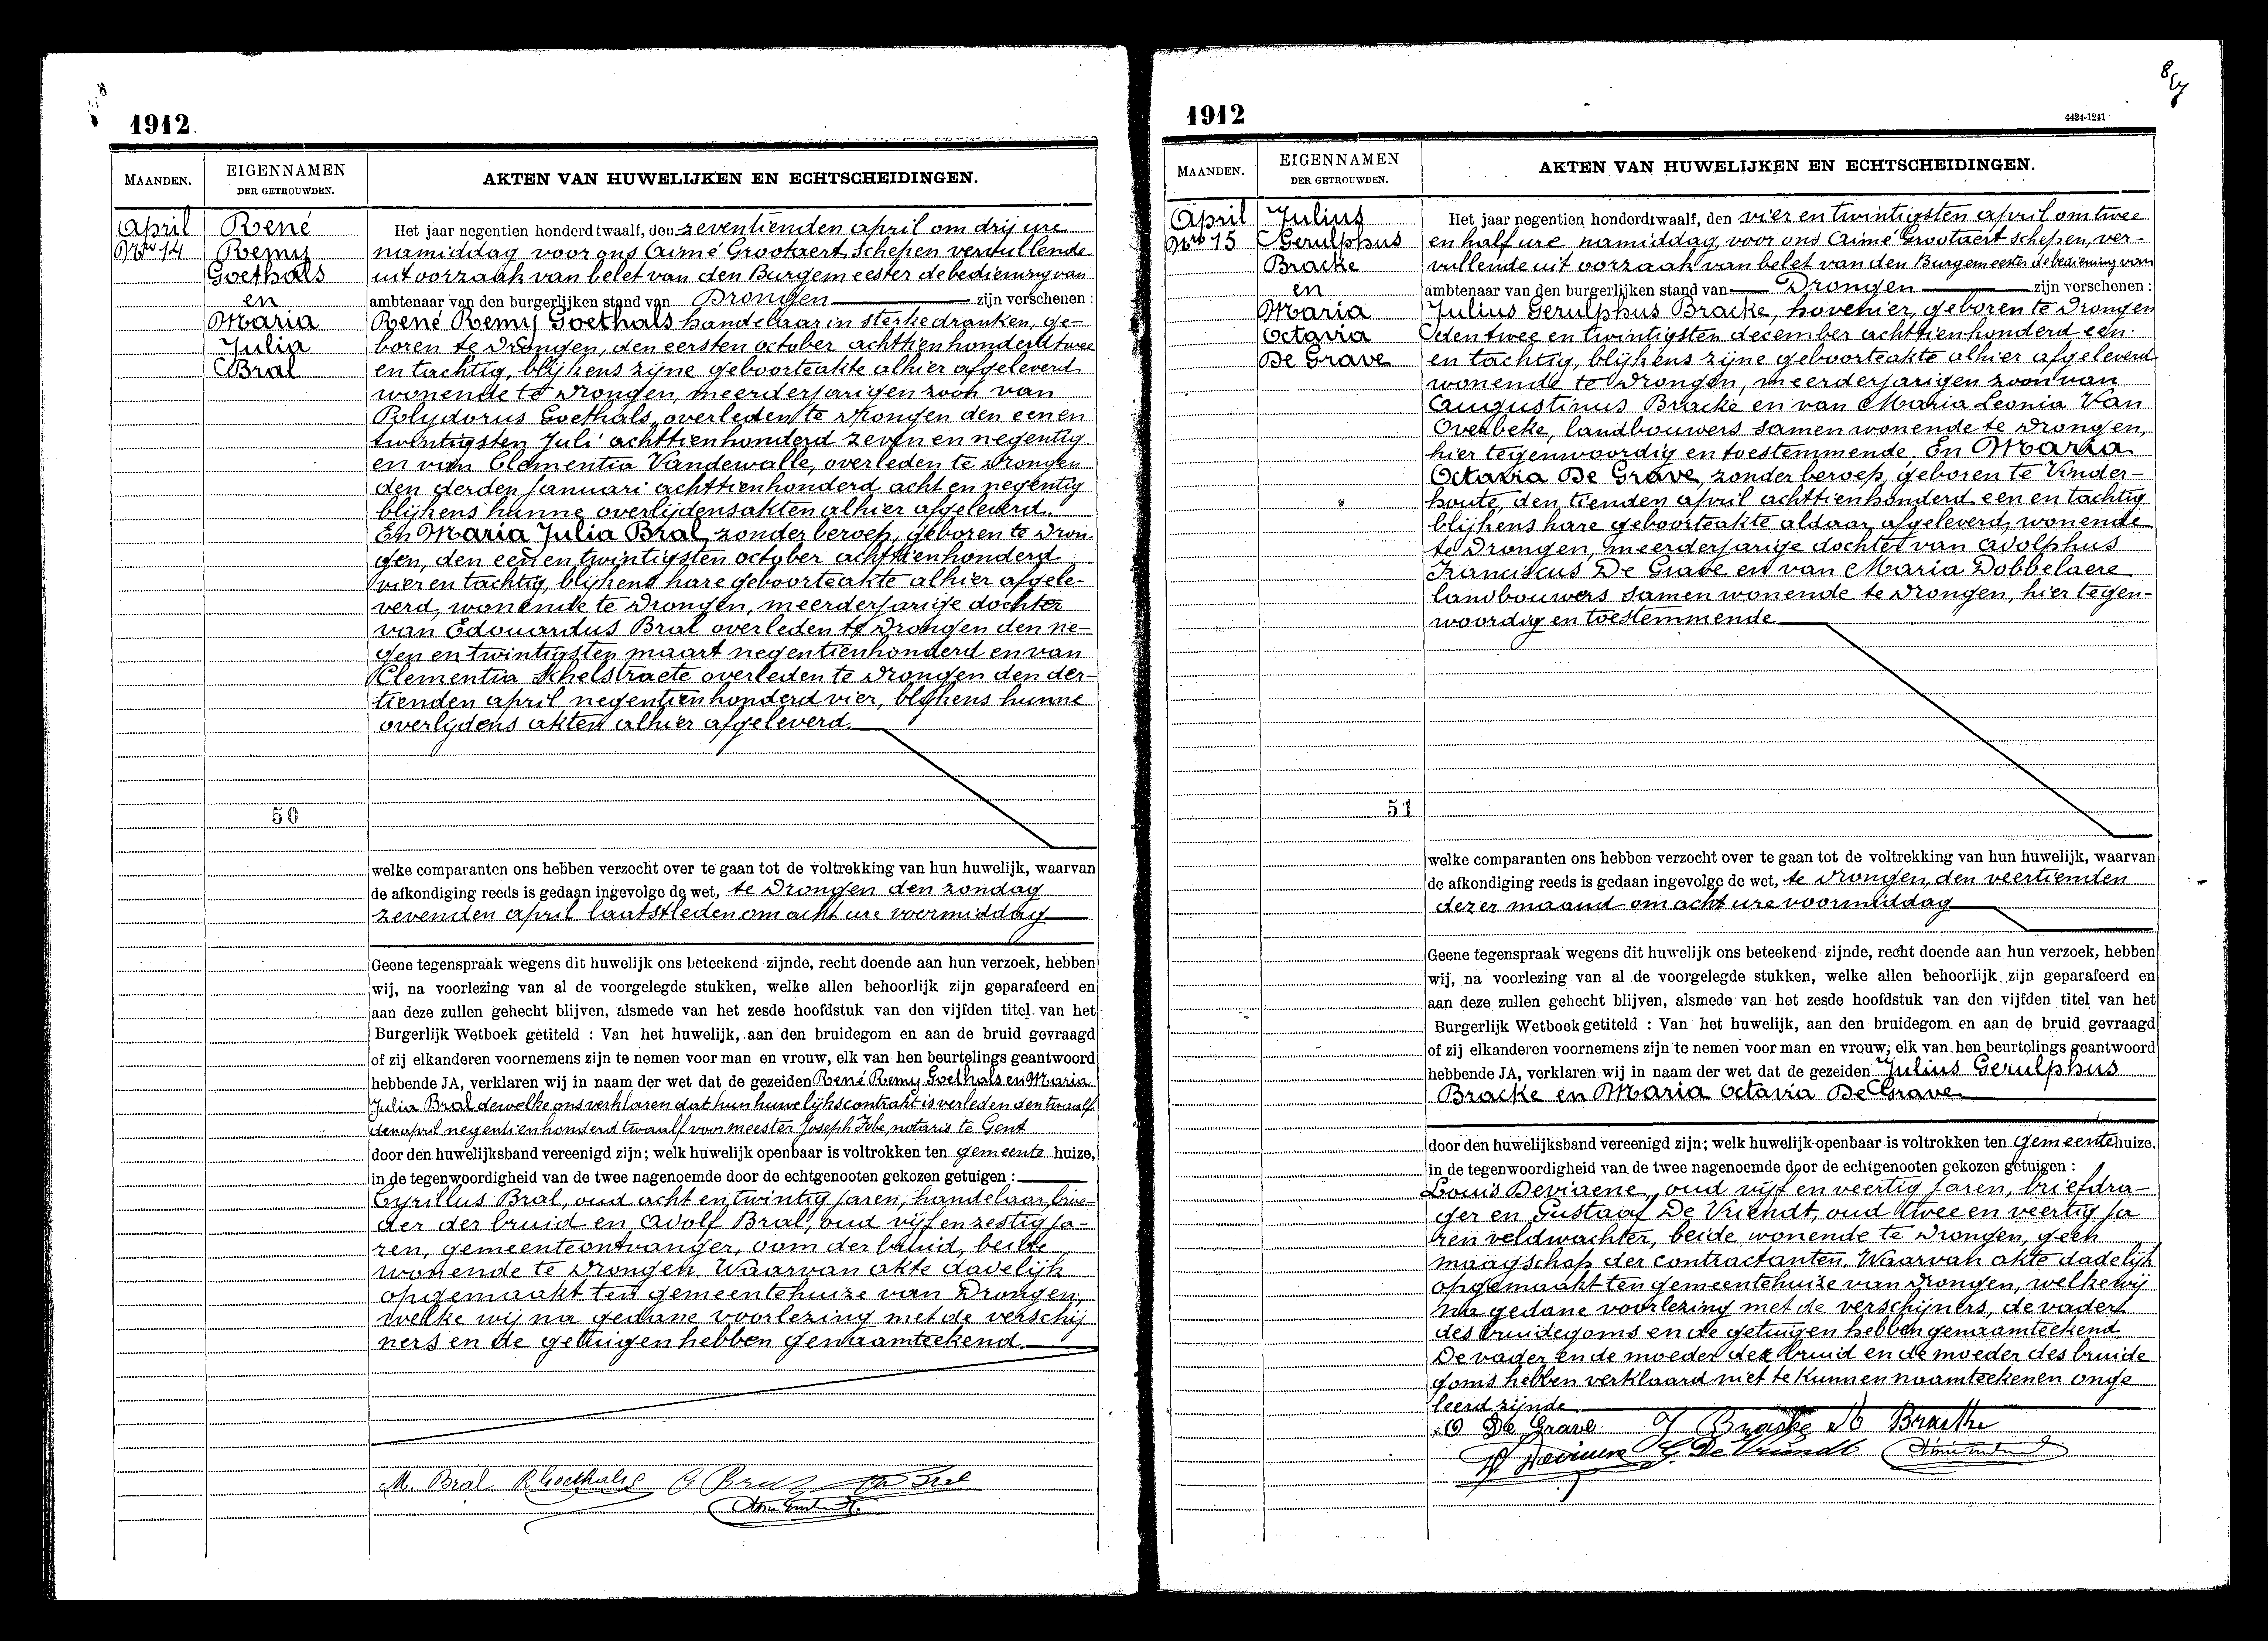 1912.
MAANDEN.
EIGENNAMEN
DER GETROUWDEN.
AKTEN VAN HUWELIJKEN EN ECHTSCHEIDINGEN.
April
Nro 14
René
Remy
Goethals
en
Maria
Julia
Bral
50
Het jaar negentien honderd twaalf, den zeventienden april om drij ure
namiddag voor ons Aimé Grootaert, Schepen vervullende
uit oorzaak van belet van den Burgemeester de bediening van
ambtenaar van den burgerlijken stand van Drongen zijn verschenen :
René Remy Goethals handelaar in sterke dranken, ge-
boren te Drongen, den eersten october achttien honderd twee
en tachtig, blijkens zijne geboorteakte alhier afgeleverd
wonende te Drongen, meerderjarigen zoon van
Polydorus Goethals, overleden te Drongen den een en
twintigsten Juli achttienhonderd zeven en negentig
en van Clementia Vandewalle, overleden te Drongen
den derden januari achttienhonderd acht en negentig
blijkens hunne overlijdensakten alhier afgeleverd.
En Maria Julia Bral, zonder beroep, geboren te Dron-
gen, den een en twintigsten october achttienhonderd
vier en tachtig, blijkens hare geboorteakte alhier afgele-
verd, wonende te Drongen, meerderjarige dochter
van Edouardus Bral overleden te Drongen den ne-
gen en twintigsten maart negentienhonderd en van
Clementia Schelstraete overleden te Drongen den der-
tienden april negentienhonderd vier, blijkens hunne
overlijdens akten alhier afgeleverd.
welke comparanten ons hebben verzocht over te gaan tot de voltrekking van hun huwelijk, waarvan
de afkondiging reeds is gedaan ingevolge de wet, te Drongen den zondag
zevenden april laatstleden om acht ure voormiddag
Geene tegenspraak wegens dit huwelijk ons beteekend zijnde, recht doende aan hun verzoek, hebben
wij, na voorlezing van al de voorgelegde stukken, welke allen behoorlijk zijn geparafeerd en
aan deze zullen gehecht blijven, alsmede van het zesde hoofdstuk van den vijfden titel van het
Burgerlijk Wetboek getiteld : Van het huwelijk, aan den bruidegom en aan de bruid gevraagd
of zij elkanderen voornemens zijn te nemen voor man en vrouw, elk van hen beurtelings geantwoord
hebbende JA, verklaren wij in naam der wet dat de gezeiden René Remy Goethals en Maria
Julia Bral dewelke ons verklaren dat hun huwelijkscontrakt is verleden den twaalf
den april negentienhonderd twaalf voor meester Joseph Fobe, notaris te Gent
door den huwelijksband vereenigd zijn; welk huwelijk openbaar is voltrokken ten gemeente huize,
in de tegenwoordigheid van de twee nagenoemde door de echtgenooten gekozen getuigen :
Cyrillus Bral, oud acht en twintig jaren, handelaar, broe-
der der bruid en Adolf Bral, oud vijf en zestig ja-
ren, gemeenteontvanger, oom der bruid, beide
wonende te Drongen. Waarvan akte dadelijk
opgemaakt ten gemeentehuize van Drongen,
welke wij na gedane voorlezing met de verschij
ners en de getuigen hebben genaamteekend.
M. Bral R. Goethals C Bral Bral
1912
4424-1241
MAANDEN.
EIGENNAMEN
DER GETROUWDEN.
AKTEN VAN HUWELIJKEN EN ECHTSCHEIDINGEN.
April
Nro 15
Julius
Gerulphus
Bracke
en
Maria
Octavia
De Grave
51
Het jaar negentien honderd twaalf, den vier en twintigsten april om twee
en half ure namiddag, voor ons Aimé Grootaert schepen, ver-
vullende uit oorzaak van belet van den Burgemeester de bediening van
ambtenaar van den burgerlijken stand van Drongen zijn verschenen :
Julius Gerulphus Bracke, hovenier, geboren te Drongen
den twee en twintigsten december achttienhonderd een
en tachtig, blijkens zijne geboorteakte alhier afgeleverd
wonende te Drongen, meerderjarigen zoon van
Augustinus Bracke en van Maria Leonia Van
Overbeke, landbouwers samen wonende te Drongen,
hier tegenwoordig en toestemmende. En Maria
Octavia De Grave, zonder beroep, geboren te Vinder-
houte, den tienden april achttienhonderd een en tachtig
blijkens hare geboorteakte aldaar afgeleverd, wonende
te Drongen, meerderjarige dochter van Adolphus
Franciscus De Grave en van Maria Dobbelaere
landbouwers samen wonende te Drongen, hier tegen-
woordig en toestemmende
welke comparanten ons hebben verzocht over te gaan tot de voltrekking van hun huwelijk, waarvan
de afkondiging reeds is gedaan ingevolge de wet, te Drongen, den veertienden
dezer maand om acht ure voormiddag
Geene tegenspraak wegens dit huwelijk ons beteekend zijnde, recht doende aan hun verzoek, hebben
wij, na voorlezing van al de voorgelegde stukken, welke allen behoorlijk zijn geparafeerd en
aan deze zullen gehecht blijven, alsmede van het zesde hoofdstuk van den vijfden titel van het
Burgerlijk Wetboek getiteld : Van het huwelijk, aan den bruidegom en aan de bruid gevraagd
of zij elkanderen voornemens zijn te nemen voor man en vrouw, elk van hen beurtelings geantwoord
hebbende JA, verklaren wij in naam der wet dat de gezeiden Julius Gerulphus
Bracke en Maria Octavia De Grave
door den huwelijksband vereenigd zijn; welk huwelijk openbaar is voltrokken ten gemeentehuize,
in de tegenwoordigheid van de twee nagenoemde door de echtgenooten gekozen getuigen :
Louis Deviaene, oud vijf en veertig jaren, briefdra-
ger en Gustaaf De Vriendt, oud twee en veertig ja
ren veldwachter, beide wonende te Drongen, geen
maagschap der contractanten. Waarvan akte dadelijk
opgemaakt ten gemeentehuize van Drongen, welke wij
na gedane voorlezing met de verschijners, de vader
des bruidegoms en de getuigen hebben genaamteekend.
De vader en de moeder der bruid en de moeder des bruide
goms hebben verklaard niet te kunnen naamteekenen onge
leerd zijnde.
O De Grave J Bracke Bracke
Deviaene G. De Vriendt